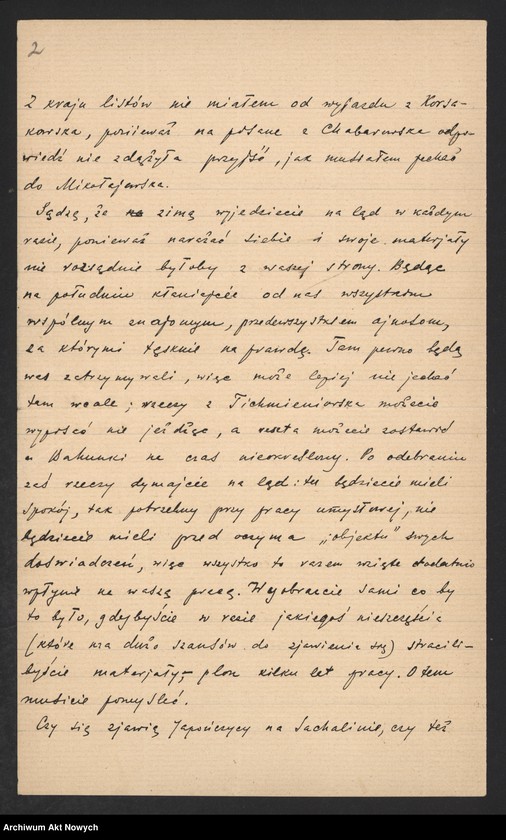 2
Z kraju listów nie miałem od wyjazdu z Korsa-
kowska, ponieważ na pisane z Chabarowska odpo-
wiedź nie zdążyła przyjść, jak musiałem jechać
do Mikołajewska.
Sądzę, że zimą wyjedziecie na ląd w każdym
razie, ponieważ narażać siebie i swoje materjały
nie rozsądnie byłoby z waszej strony. Będąc
na południu kłaniajcie od nas wszystkim
wspólnym znajomym, przedewszystkiem ajnosom,
za którymi tęsknię na prawdę. Tam pewno będą
was zatrzymywali, więc może lepiej nie jechać
tam wcale; rzeczy z Tichmieniewska możecie
wypisać nie jeżdżąc, a resztę możecie zostawić
u Bahunki na czas nieokreślony. Po odebraniu
zaś rzeczy dymajcie na ląd: tu będziecie mieli
spokój, tak potrzebny przy pracy umysłowej, nie
będziecie mieli przed oczyma „objektu" swych
doświadczeń, więc wszystko to razem wzięte dodatnio
wpłynie na waszą pracę. Wyobraźcie sami co by
to było, gdybyście w razie jakiegoś nieszczęścia
(które ma dużo szansów do zjawienia się) stracili-
byście materjały, - plon kilku let pracy. O tem
musicie pomyśleć.
Czy się zjawią Japończycy na Sachalinie, czy też
Archiwum Akt Nowych